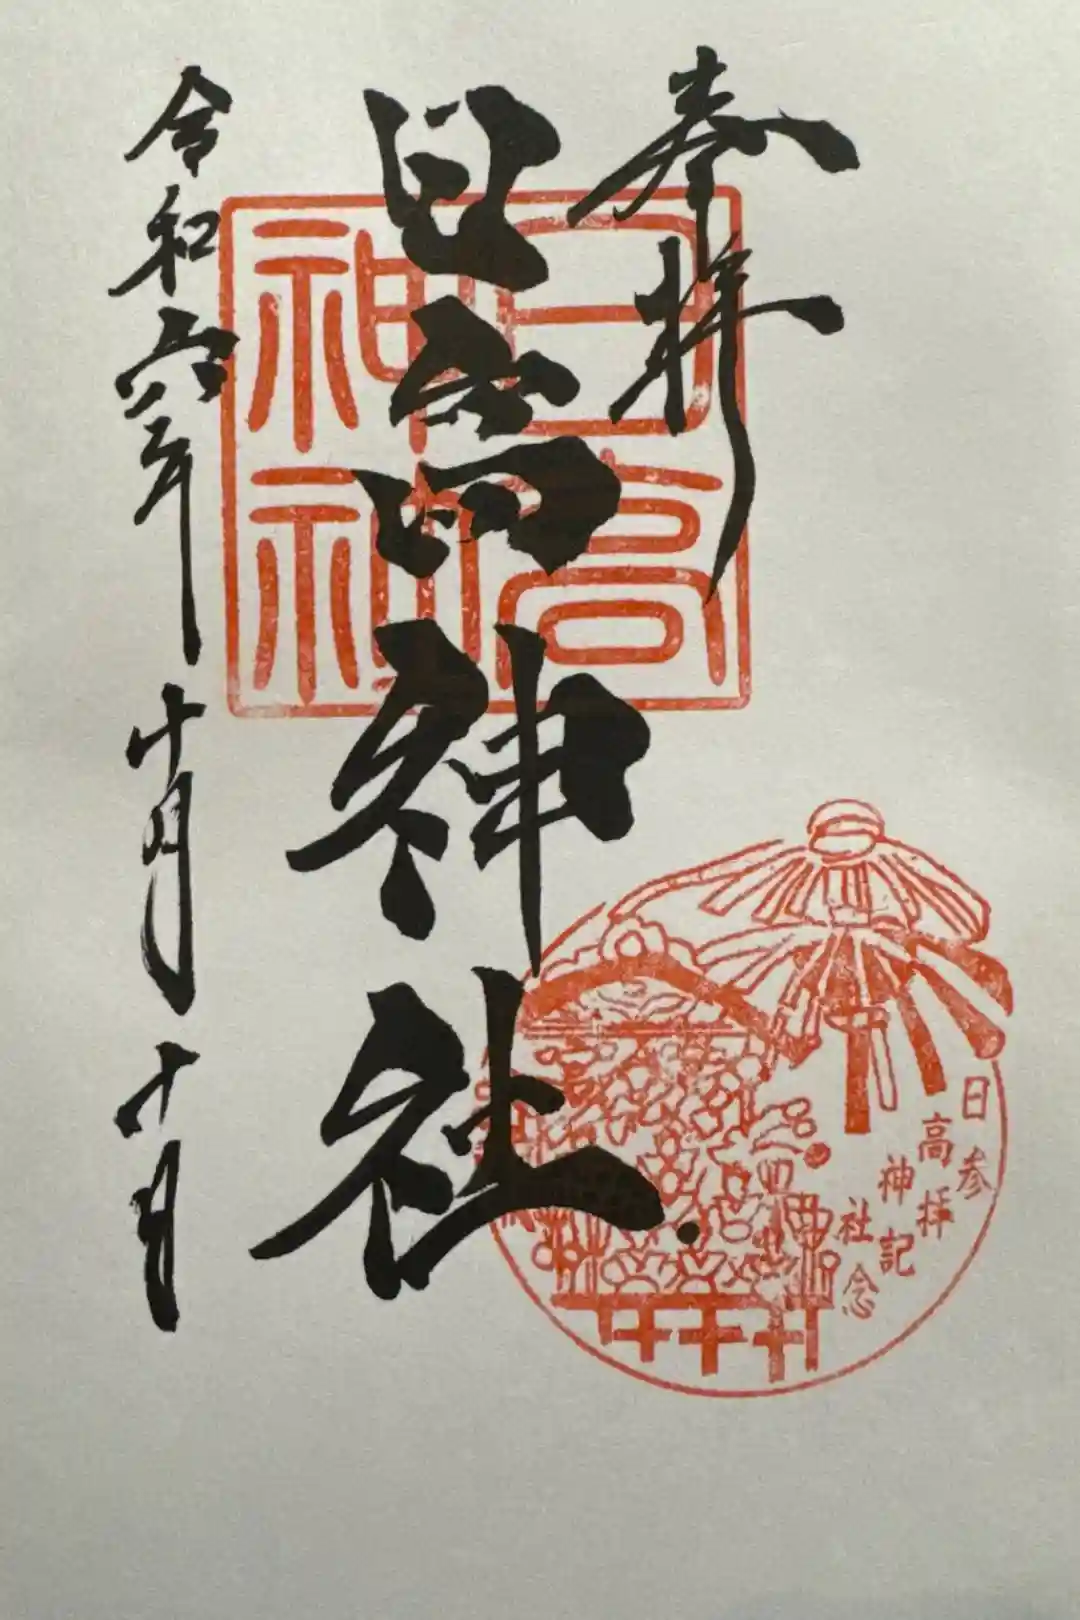 奉拝
日高神社
令和六年十月十日
日高
神社
日高神社
参拝記念